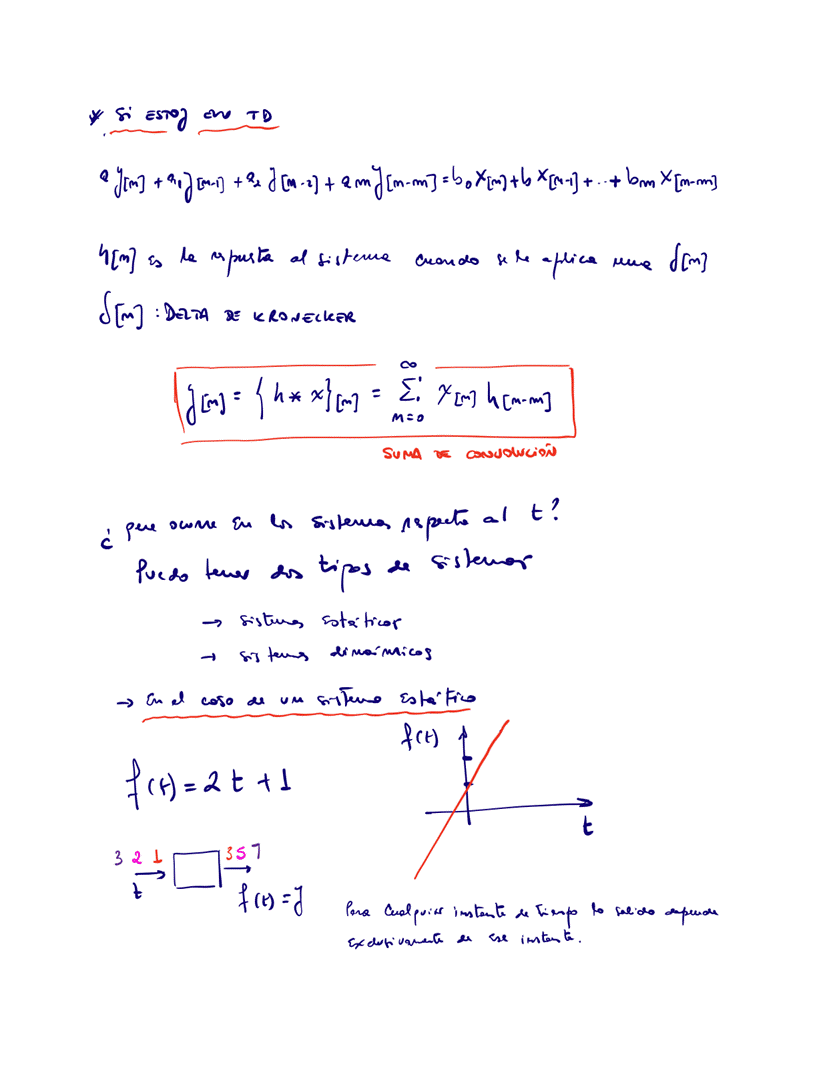 * Si ESTOY EN TD
a y[n] + a₁ y[n-1] + a₂ y[n-2] + a m y[n-m] = b₀ x[n] + b x[n-1] + ... + bm x[n-m]
h[n] es la rpusta al sistema cuando se le aplica una δ[n]
δ[n] : DELTA DE KRONECKER
y[n] = { h * x}[n] = ∞ Σ n=0 x[n] h[n-m]
SUMA DE CONVOLUCIÓN
¿ que ocurre en los sistemas respecto al t?
Puedo tener dos tipos de sistemas
→ sistemas estáticos
→ sistemas dinámicos
→ En el caso de un sistema Estático
f(t)
f(t) = 2 t + 1
t
3 2 1
3 5 7
t
f(t) = y
Para cualquier instante de tiempo la salida depende
Exclusivamente de ese instante.